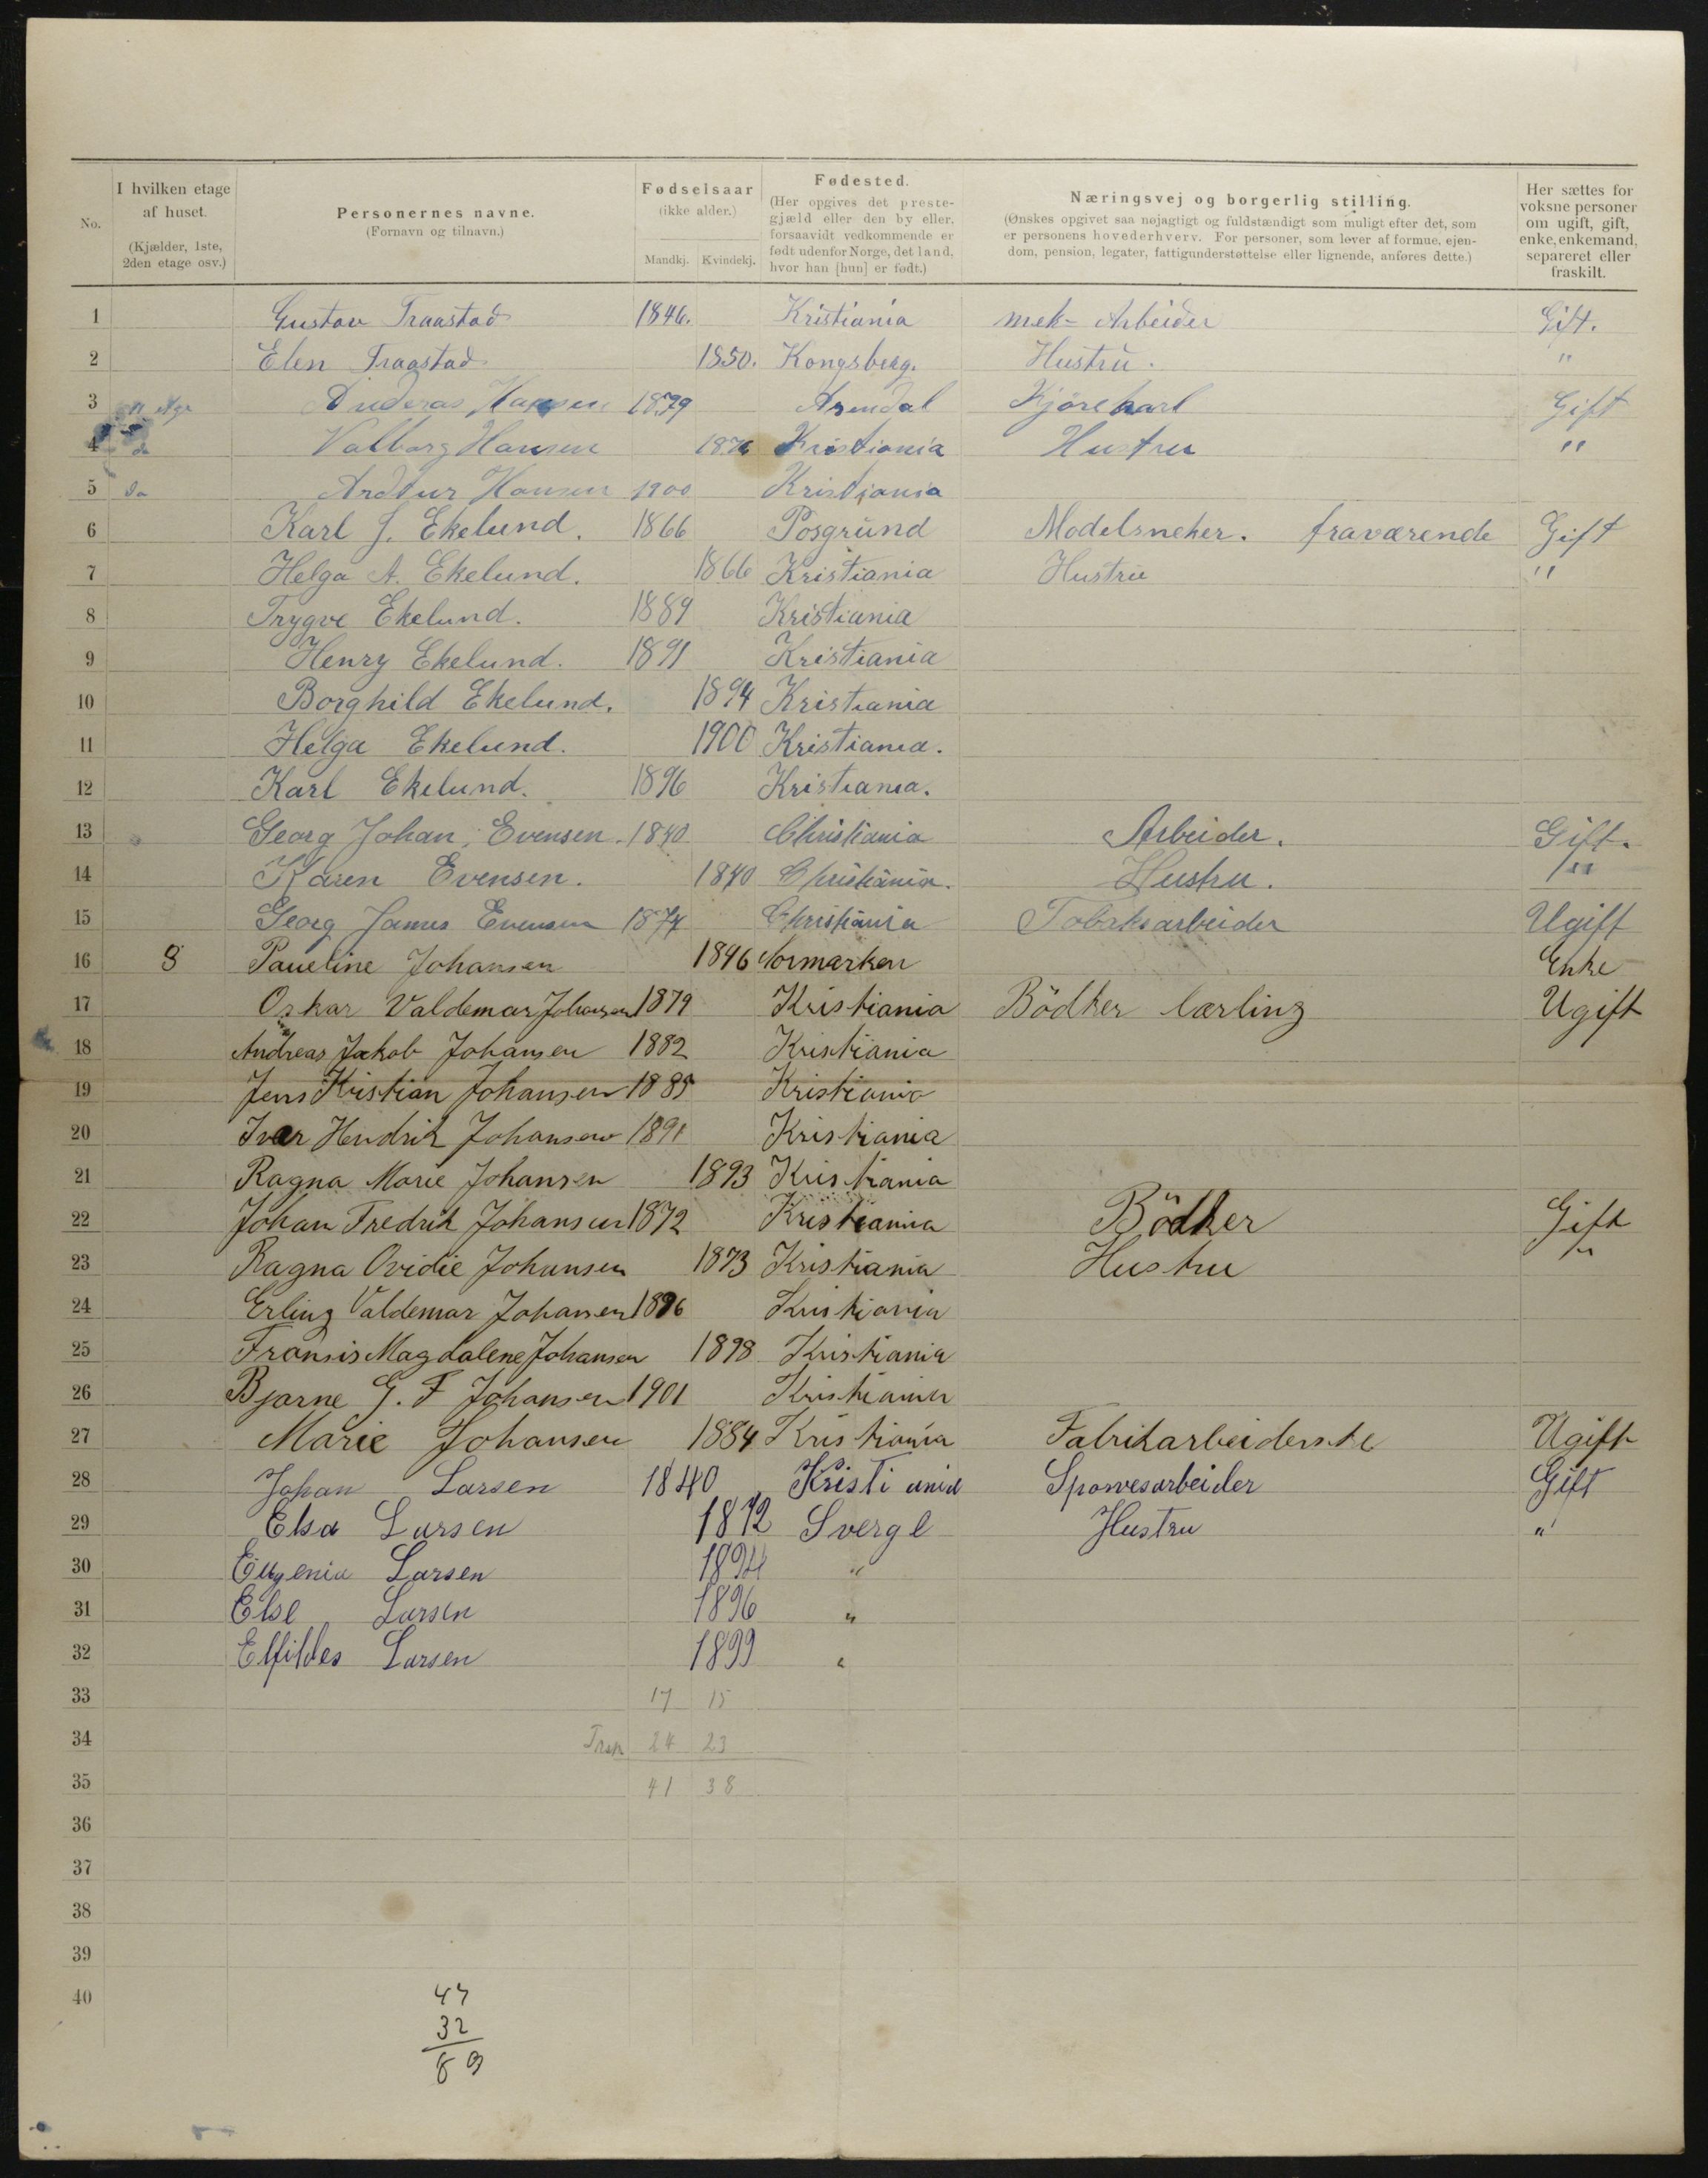 No.
I hvilken etage
af huset.
(Kjælder, 1ste,
2den etage osv.)
Personernes navne.
(Fornavn og tilnavn.)
Fødselsaar
(ikke alder.)
Mandkj. Kvindekj.
Fødested.
(Her opgives det preste-
gjæld eller den by eller,
forsaavidt vedkommende er
født udenfor Norge, det land,
hvor han [hun] er født.)
Næringsvej og borgerlig stilling.
(Ønskes opgivet saa nøjagtigt og fuldstændigt som muligt efter det, som
er personens hovederhverv. For personer, som lever af formue, ejen-
dom, pension, legater, fattigunderstøttelse eller lignende, anføres dette.)
Her sættes for
voksne personer
om ugift, gift,
enke, enkemand,
separeret eller
fraskilt.
1 Gustav Traastad 1846. Kristiania mek- Arbeider Gift.
2 Elen Traastad 1850. Kongsberg. Hustru. "
3 Hansen 1879 Arendal Kjørekarl Gift
4 Valborg Hansen 1876 Kristiania Hustru "
5 Do Ardtur Hansen 1900 Kristiania
6 Karl J. Ekelund. 1866 Posgrund Modelsneker. fraværende Gift
7 Helga A. Ekelund. 1866 Kristiania Hustru "
8 Trygve Ekelund. 1889 Kristiania
9 Henry Ekelund. 1891 Kristiania
10 Borghild Ekelund. 1894 Kristiania
11 Helga Ekelund. 1900 Kristiania.
12 Karl Ekelund. 1896 Kristiania.
13 Georg Johan Evensen. 1840 Christiania Arbeider. Gift.
14 Karen Evensen. 1840 Christiania. Hustru. "
15 Georg James Evensen 1874 Christiania Tobaksarbeider Ugift
16 8 Paueline Johansen 1846 Normarken Enke
17 Oskar Valdemar Johansen 1879 Kristiania Bödker lærling Ugift
18 Andreas Jakob Johansen 1882 Kristiania
19 Jens Kristian Johansen 1885 Kristiania
20 Ivar Hendrik Johansen 1891 Kristiania
21 Ragna Marie Johansen 1893 Kristiania
22 Johan Fredrik Johansen 1872 Kristiania Bödker Gift
23 Ragna Ovidie Johansen 1873 Kristiania Hustru "
24 Erling Valdemar Johansen 1896 Kristiania
25 Fransis Magdalene Johansen 1898 Kristiania
26 Bjarne G. F Johansen 1901 Kristiania
27 Marie Johansen 1884 Kristiania Fabrikarbeiderske Ugift
28 Johan Larsen 1840 Kristiania Sporvesarbeider Gift
29 Elsa Larsen 1872 Svergl Hustru "
30 Eugenia Larsen 1894 "
31 Else Larsen 1896 "
32 Elfildes Larsen 1899 "
33 17 15
34 24 23
35 41 38
36
37
38
39
40
47
32